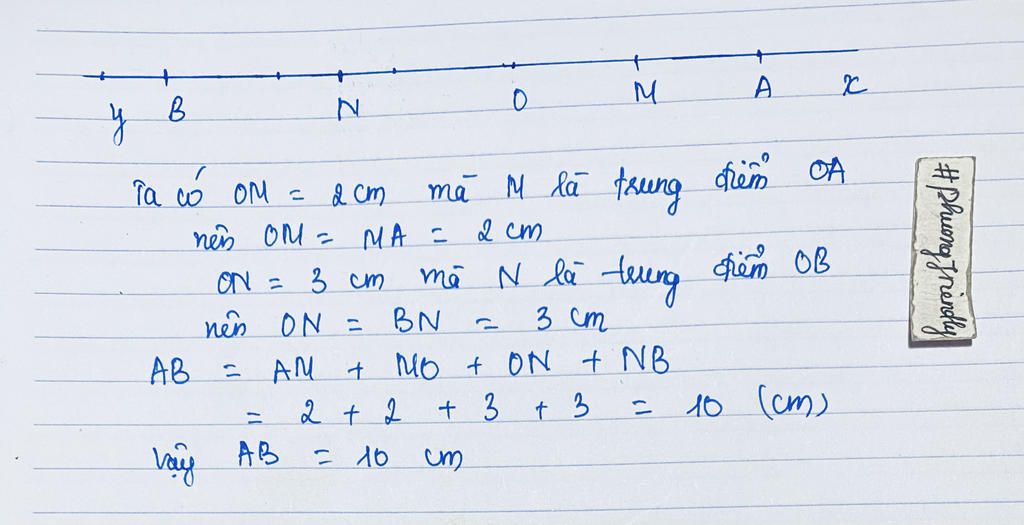 y B N O M A x
Ta có OM = 2cm mà M là trung điểm OA
nên OM = MA = 2 cm
ON = 3 cm mà N là trung điểm OB
nên ON = BN = 3 cm
AB = AM + MO + ON + NB
= 2 + 2 + 3 + 3 = 10 (cm)
Vậy AB = 10 cm
#phuongfriendly